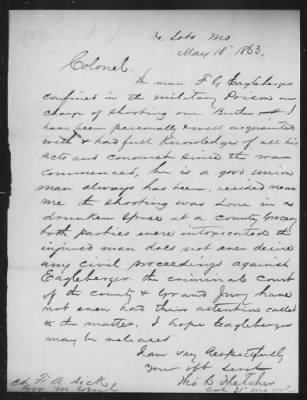 De Soto Mo
May 18th 1863.
Colonel.
The man F. G. Eagleberger
confined in the military Prison on
charge of shooting one Butler I
have been personally & well acquainted
with & had full knowledge of all his
acts and conduct since the war
commenced, he is a good union
man always has been, resided near
me the shooting was done in a
drunken spree at a county Grocery
both parties were intoxicated the
injured man does not even desire
any civil proceedings against
Eagleberger the criminal court
of the county & Grand Jury have
not even had their attention called
to the matter. I hope Eagleberger
may be released
I am very Respectfully
your obt Servt
Tho C Fletcher
Col 31st Mo vol
Col F. A. Dick
Pro M Genl